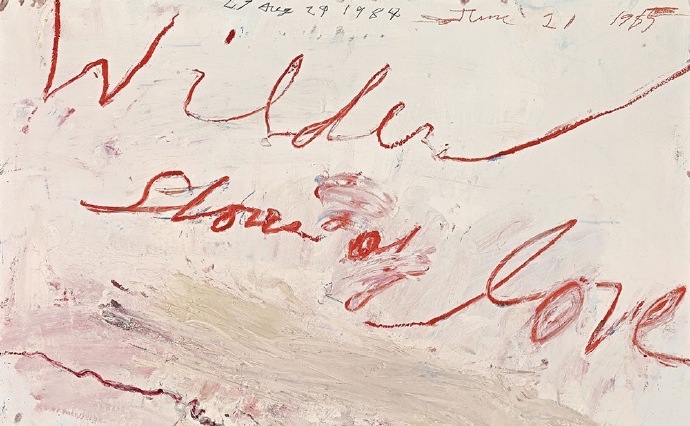 Aug 29 1984 June 21 1985
Wilder
Shores of
love